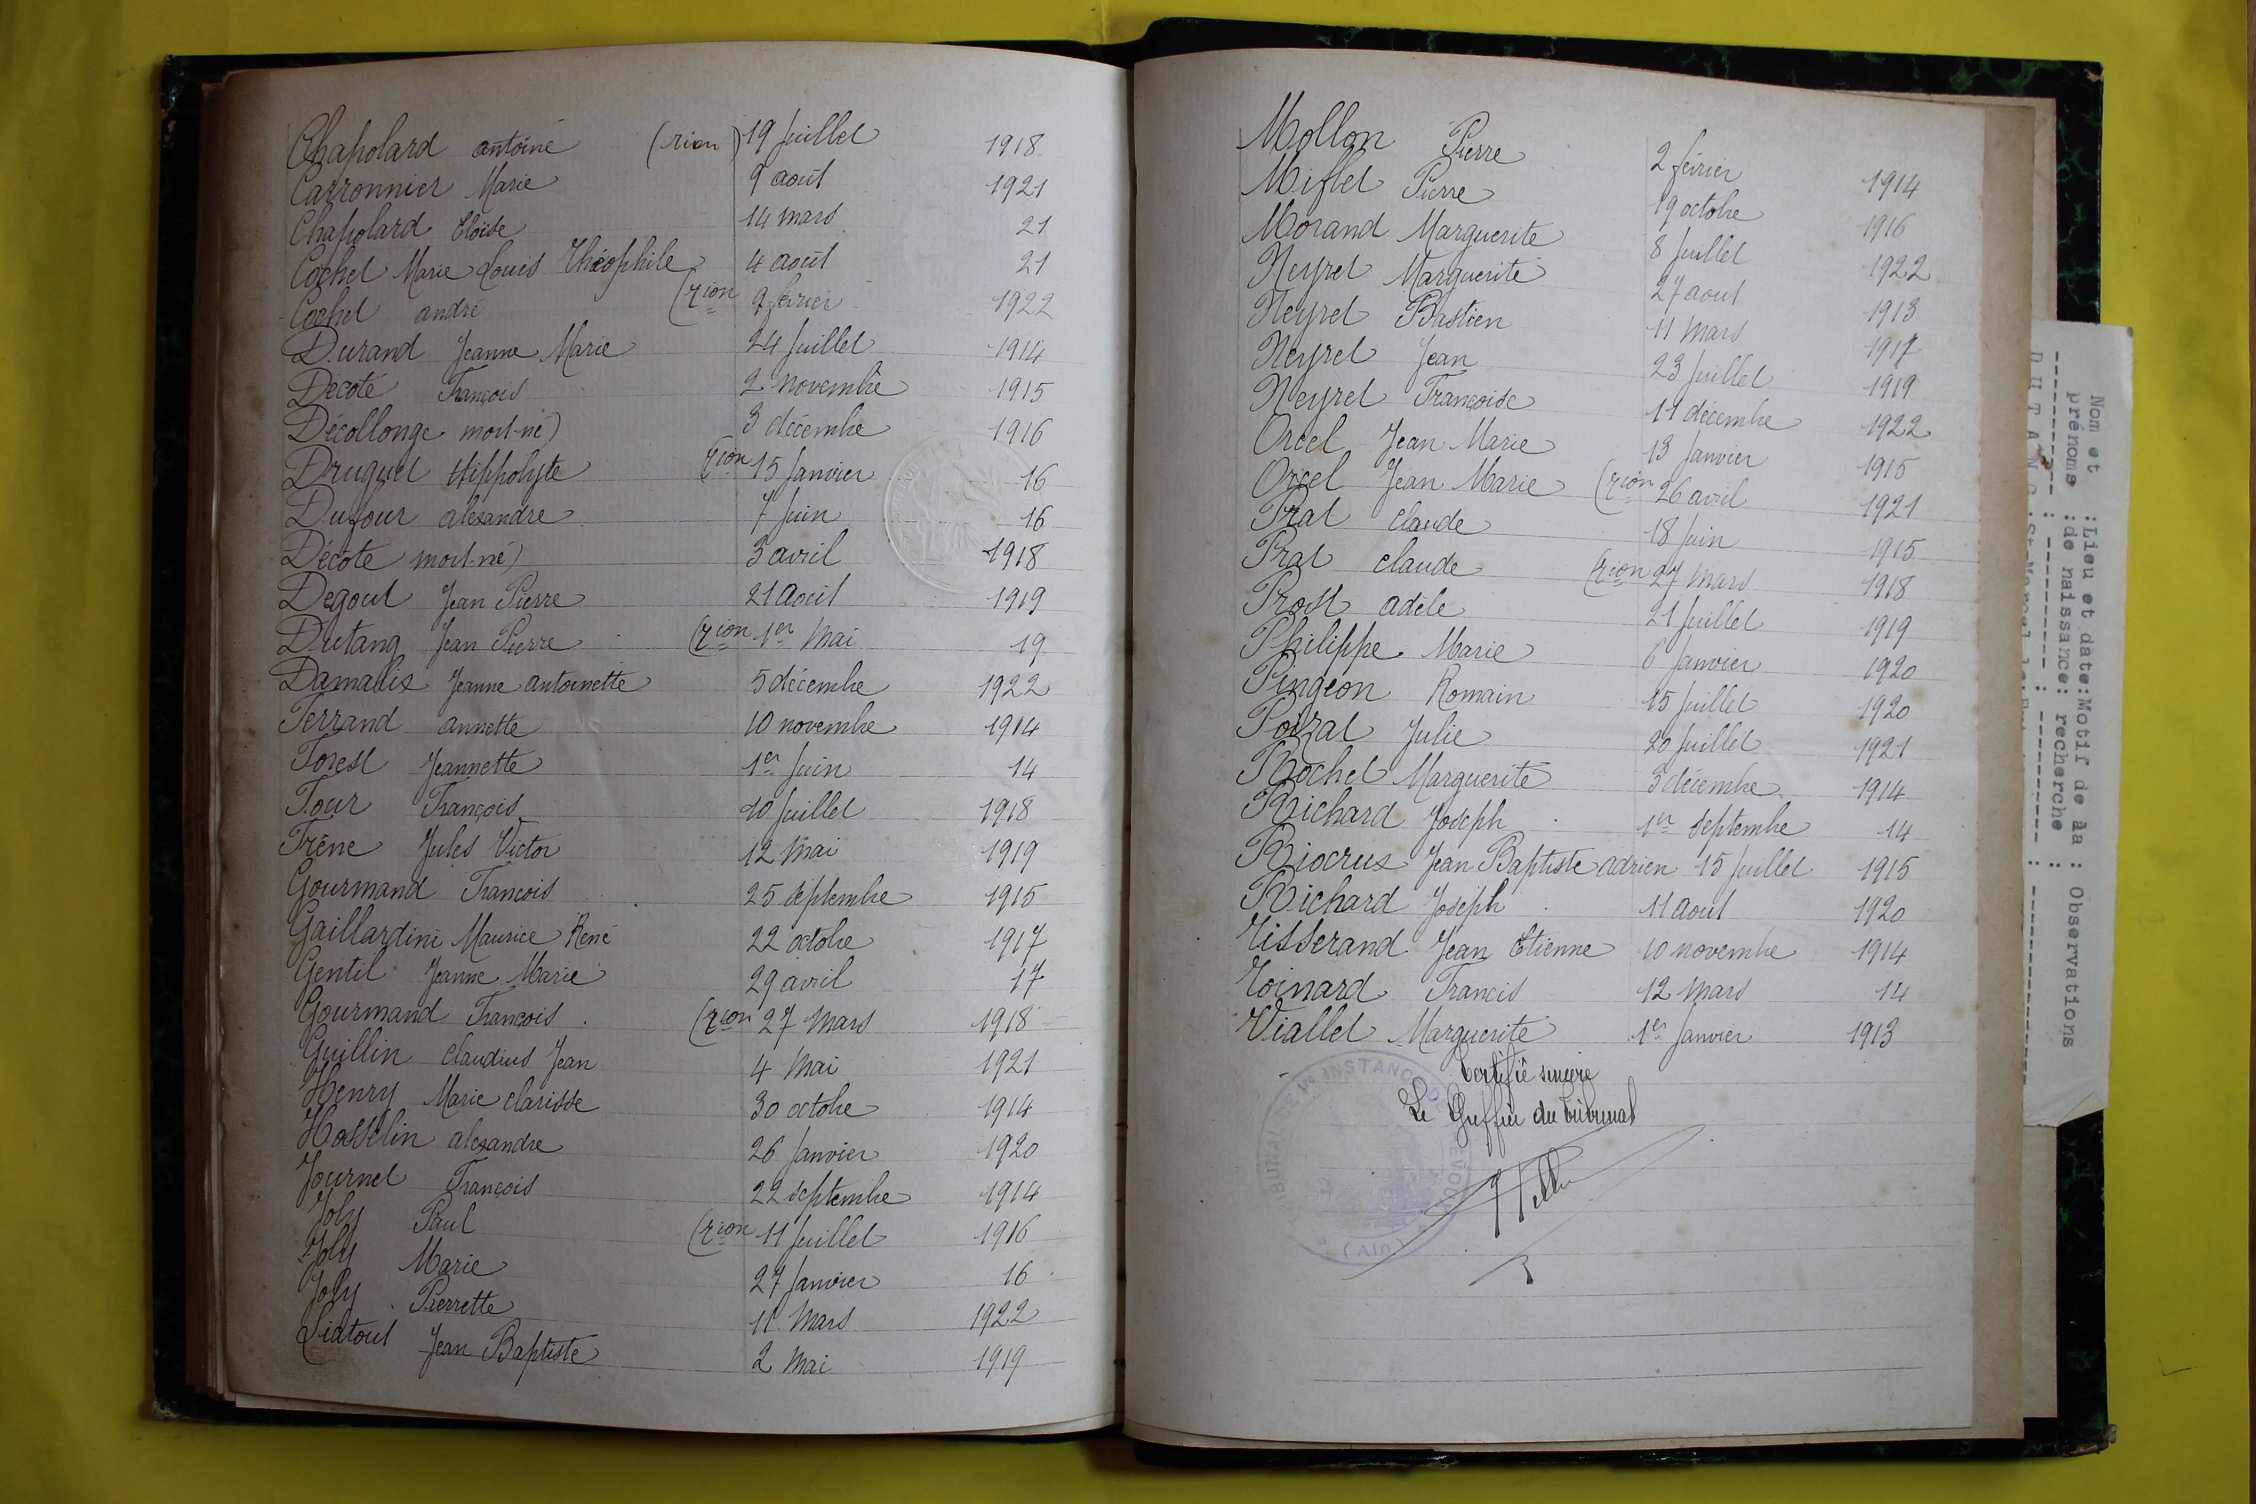 Chapolard antoine (rion) 19 Juillet 1918
Carronnier Marie 9 août 1921
Chapolard Eloïse 14 mars 21
Cochet Marie Louis Théophile 4 août 21
Cochet andré (rion 9 février 1922
Durand Jeanne Marie 24 Juillet 1914
Décoté François 2 novembre 1915
Décollonge mort-né) 3 décembre 1916
Druguet Hippolyte (rion 15 Janvier 16
Dufour alexandre 7 Juin 16
Décote mort-né) 3 avril 1918
Degout Jean Pierre 21 août 1919
Dutang Jean Pierre (rion 1er Mai 19
Damalix Jeanne antoinette 5 décembre 1922
Ferrand annette 10 novembre 1914
Forest Jeannette 1er Juin 14
Four François 10 Juillet 1918
Frène Jules Victor 12 Mai 1919
Gourmand François 25 septembre 1915
Gaillardini Maurice René 22 octobre 1917
Gentil Jeanne Marie 29 avril 17
Gourmand François (rion 27 Mars 1918
Guillin claudius Jean 4 Mai 1921
Henry Marie clarisse 30 octobre 1914
Hosselin alexandre 26 Janvier 1920
Journet François 22 septembre 1914
Joly Paul (rion 11 Juillet 1916
Joly Marie 27 Janvier 16
Joly Pierrette 11 Mars 1922
Liatout Jean Baptiste 2 Mai 1919
Mollon Pierre 2 février 1914
Miflet Pierre 19 octobre 1916
Morand Marguerite 8 Juillet 1922
Neyret Marguerite 27 aout 1913
Neyret Bastien 11 Mars 1917
Neyret Jean 23 Juillet 1919
Neyret Françoise 11 décembre 1922
Orcel Jean Marie 13 Janvier 1915
Orcel Jean Marie (rion 26 avril 1921
Prat claude 18 Juin 1915
Prat claude (rion 27 Mars 1918
Prost adèle 21 Juillet 1919
Philippe Marie 6 Janvier 1920
Pingeon Romain 15 Juillet 1920
Poizat Julie 20 Juillet 1921
Rochet Marguerite 3 décembre 1914
Richard Joseph 1er septembre 14
Riocrux Jean Baptiste adrien 15 Juillet 1915
Richard Joseph 11 aout 1920
Tisserand Jean Etienne 10 novembre 1914
Toinard Francis 12 Mars 14
Viallet Marguerite 1er Janvier 1913
Certifié sincère
Le Greffier du Tribunal
(Ain)
Nom et :Lieu et date:Motif de la : Observations
prénoms :de naissance: recherche :
DUTANG